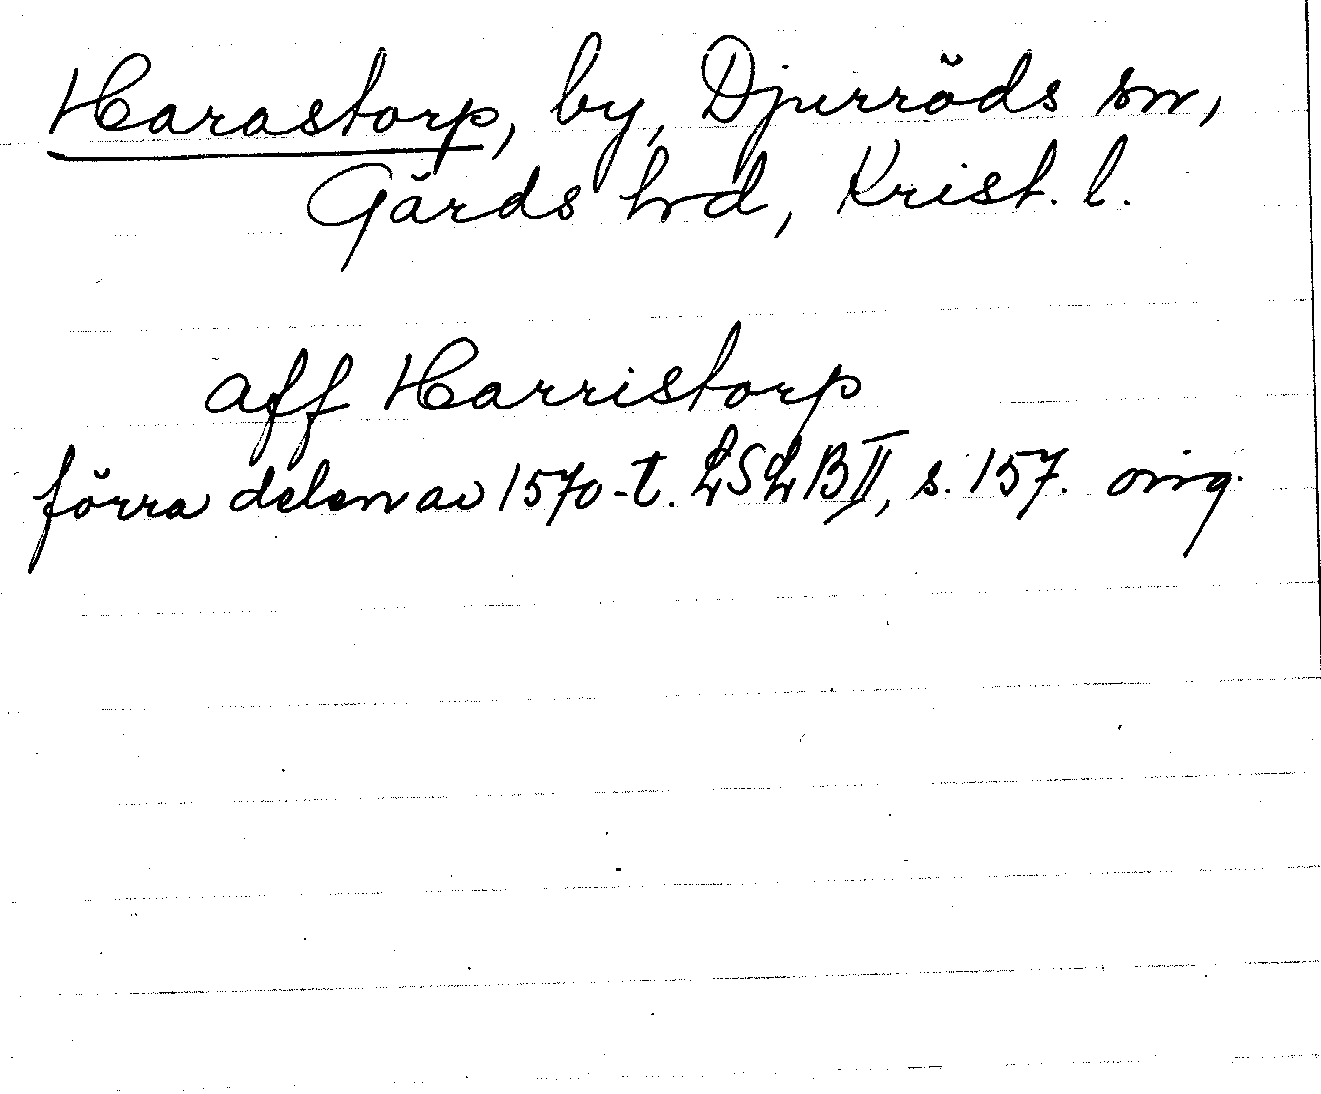 Harastorp, by, Djurröds sn,
Gärds hrd, Krist. l.
aff Harristorp
förra delen av 1570-t. LSLB II, s. 157. orig.